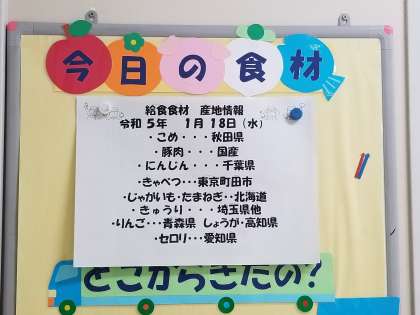 今日の食材
給食食材　産地情報
令和 5年　1月 18日（水）
・こめ・・・秋田県
・豚肉・・・国産
・にんじん・・・千葉県
・きゃべつ・・・東京町田市
・じゃがいも・たまねぎ・・北海道
・きゅうり・・・埼玉県他
・りんご・・・青森県 しょうが・高知県
・セロリ・・・愛知県
どこからきたの？